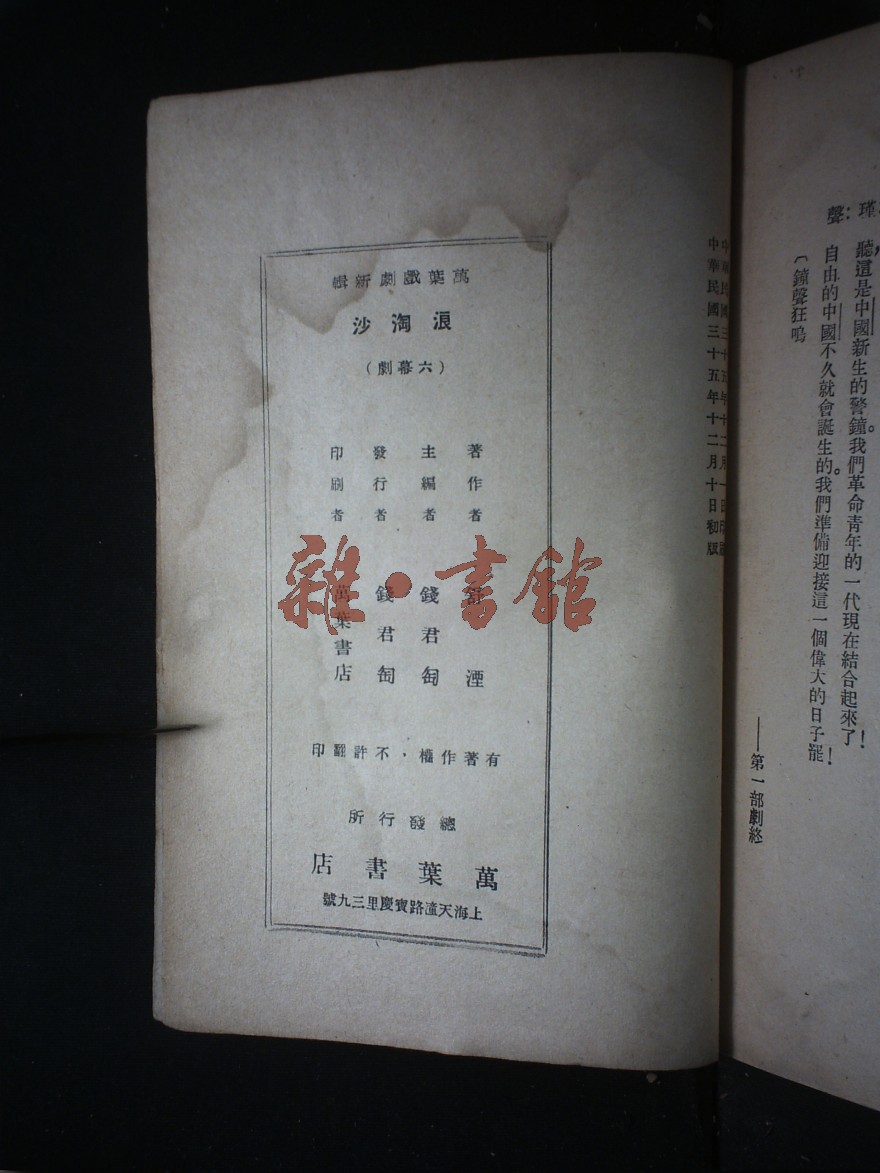 瑾：聽，這是中國新生的警鐘。我們革命青年的一代現在結合起來了！
聲：自由的中國不久就會誕生的。我們準備迎接這一個偉大的日子罷！
〔鐘聲狂鳴
——第一部劇終
中華民國三十五年十二月一日印刷
中華民國三十五年十二月十日初版
萬葉戲劇新輯
浪淘沙
（六幕劇）
著作者 舒湮
主編者 錢君匋
發行者 錢君匋
印刷者 萬葉書店
有著作權·不許翻印
總發行所
萬葉書店
上海天潼路寶慶里三九號
雜·書館